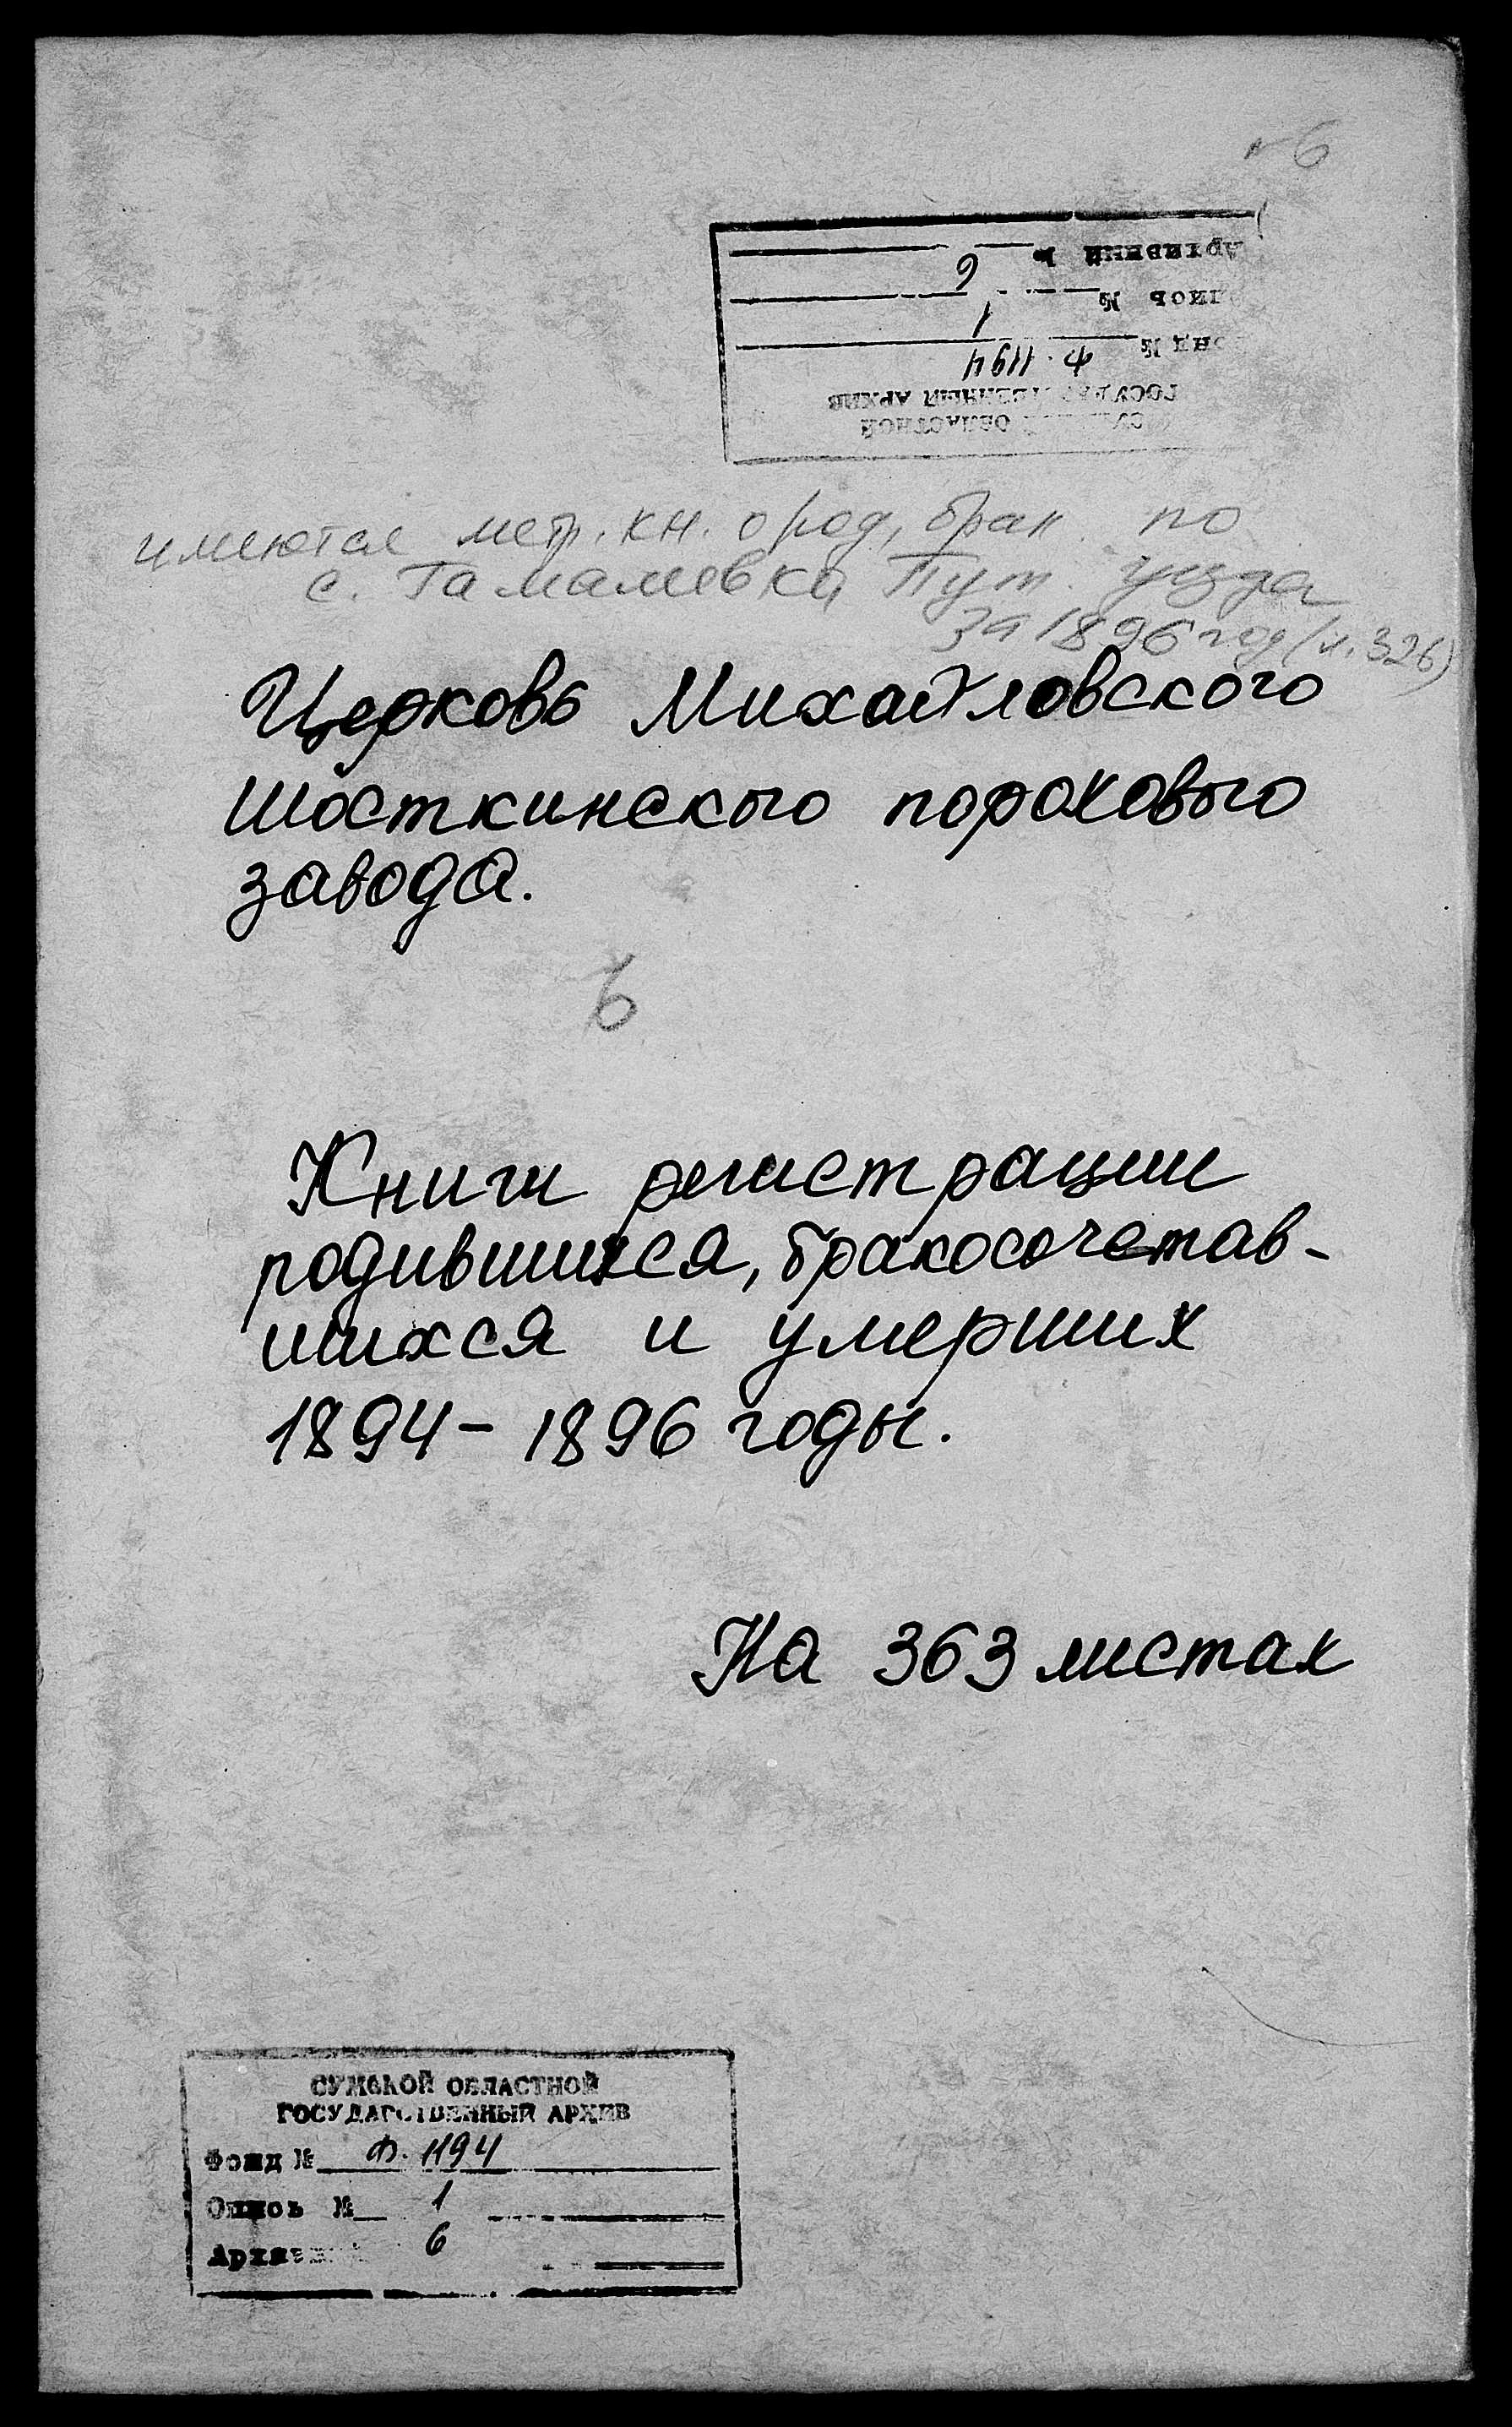 №6
Архивный № 6
Опись № 1
Фонд № Ф. 1194
ГОСУДАРСТВЕННЫЙ АРХИВ
СУМСКОЙ ОБЛАСТНОЙ
имеются метр. кн. о род, брак по
с. Гамалеевка Пут. уезда
за 1896 год (л. 326)
Церковь Михайловского
Шосткинского порохового
завода.
6
Книги регистрации
родившихся, бракосочетав-
шихся и умерших
1894-1896 годы.
На 363 листах
СУМСКОЙ ОБЛАСТНОЙ
ГОСУДАРСТВЕННЫЙ АРХИВ
Фонд № Ф. 1194
Опись № 1
Архивный 6